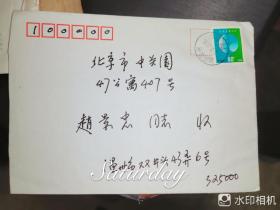 100000
北京市中关园
47公寓407号
赵景忠 同志 收
温州市双井头43弄6号
325000
Saturday
水印相机